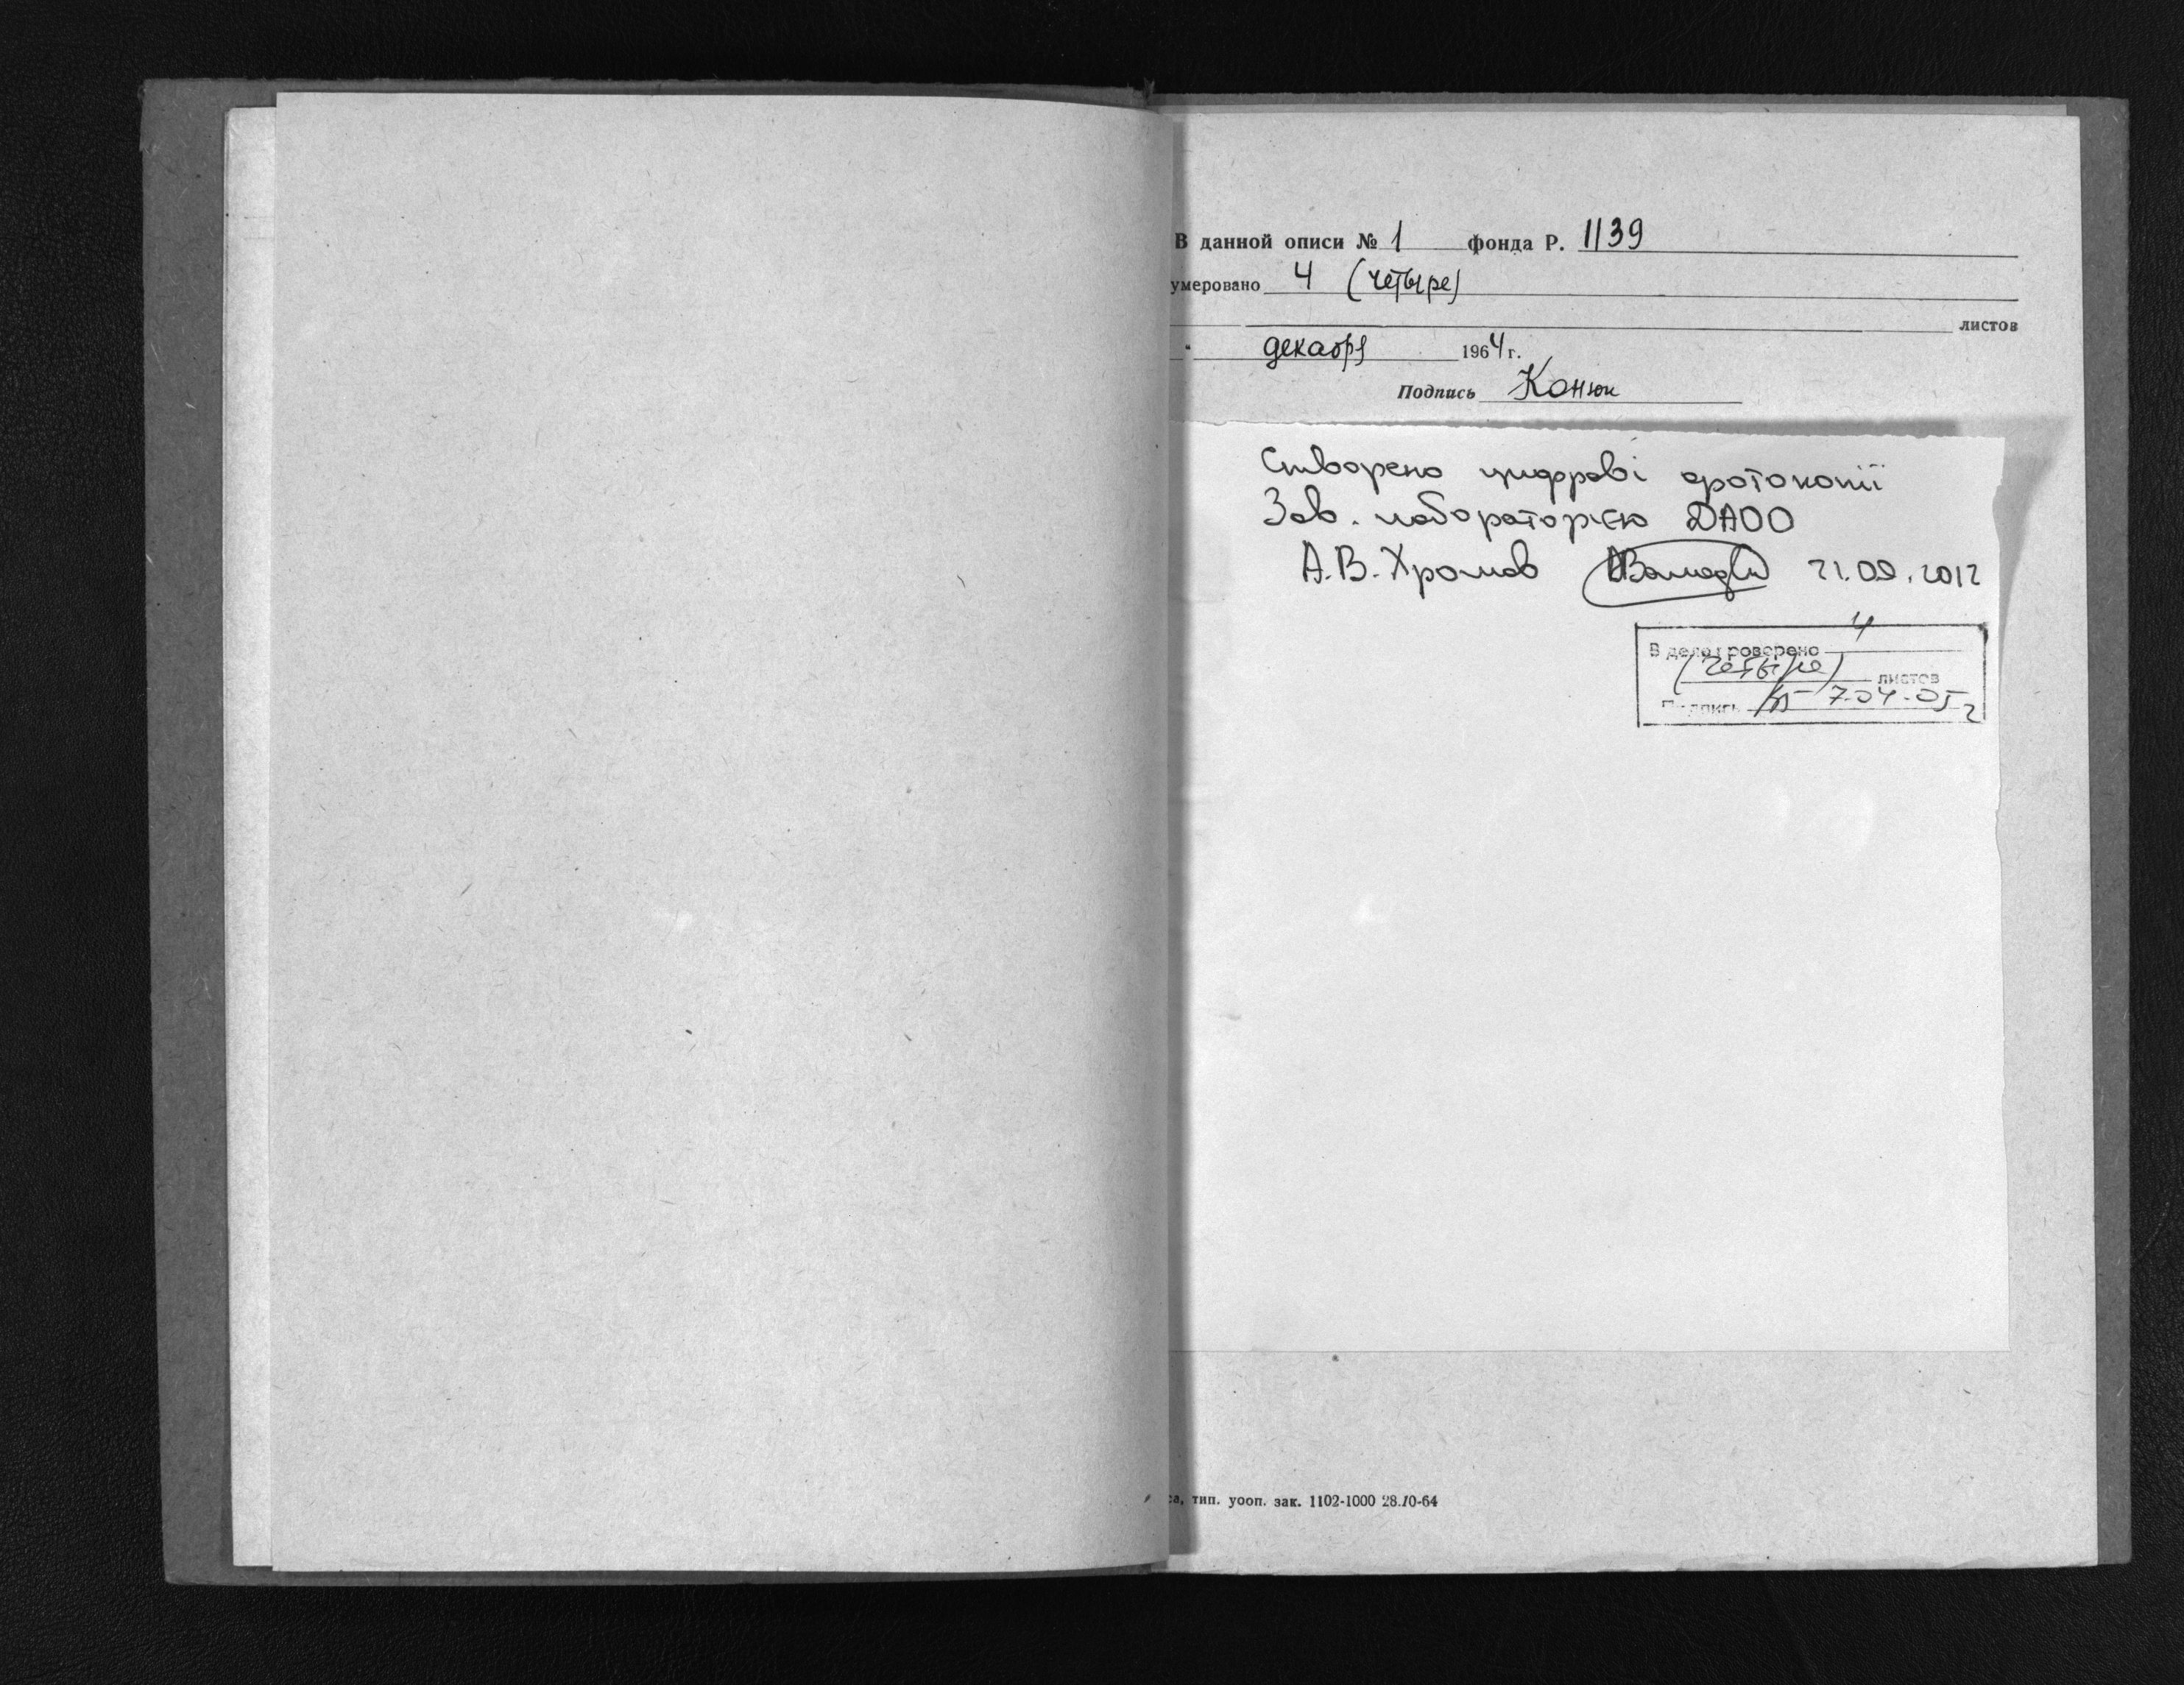 В данной описи № 1 фонда Р. 1139
умеровано 4 (четыре)
листов
" декабря 1964 г.
Подпись Конюк
Створено цифрові фотокопії
Зав. лабораторією ДАОО
А.В. Хромов 21.09.2012
В деле проверено 4
(четыре) листов
Подпись 7-04-05 г
са, тип. уооп. зак. 1102-1000 28.10-64